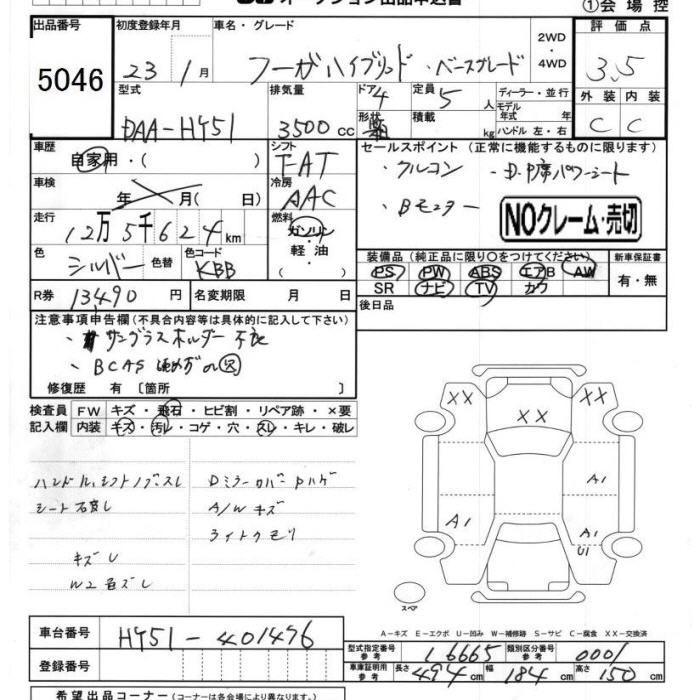 オークション出品申込書
①会場控
出品番号 5046
初度登録年月 23 1月
車名・グレード フーガハイブリッド・ベースグレード
2WD・4WD
評価点 3.5
外装 C 内装 C
型式 DAA-HY51
排気量 3500cc
ドア 4 形状 箱
定員 5人 積載 kg
ディーラー・並行
モデル年式 年
ハンドル 左・右
車歴 自家用・( )
シフト FAT
車検 年 月( 日)
冷房 AAC
走行 12万5千624km
燃料 ガソリン・軽油・( )
色 シルバー 色替 色コード KBB
R券 13490円
名変期限 月 日
セールスポイント (正常に機能するものに限ります)
・クルコン ・D.P席パワーシート
・Bモニター
NOクレーム・売切
装備品(純正品に限り○をつけてください)
PS PW ABS エアB AW
SR ナビ TV カワ
新車保証書 有・無
後日品
注意事項申告欄(不具合内容等は具体的に記入して下さい)
・サングラスホルダー不良
・BCAS
修復歴 有 〔箇所
検査員記入欄
FW キズ・飛石・ヒビ割・リペア跡・×要
内装 キズ・汚レ・コゲ・穴・スレ・キレ・破レ
ハンドル、シフトノブスレ
Dミラーカバーハゲ
シート
A/Wキズ
ライトクモリ
キズ
XX
XX
XX
A1
A1
A1
U1
スペア
A-キズ E-エクボ U-凹み W-補修跡 S-サビ C-腐食 XX-交換済
車台番号 HY51-401476
登録番号
型式指定番号参考 16665
類別区分番号参考 0001
車庫証明用参考 長さ 494cm 幅 184cm 高さ 150cm
希望出品コーナー(コーナーは各会場により異なります)